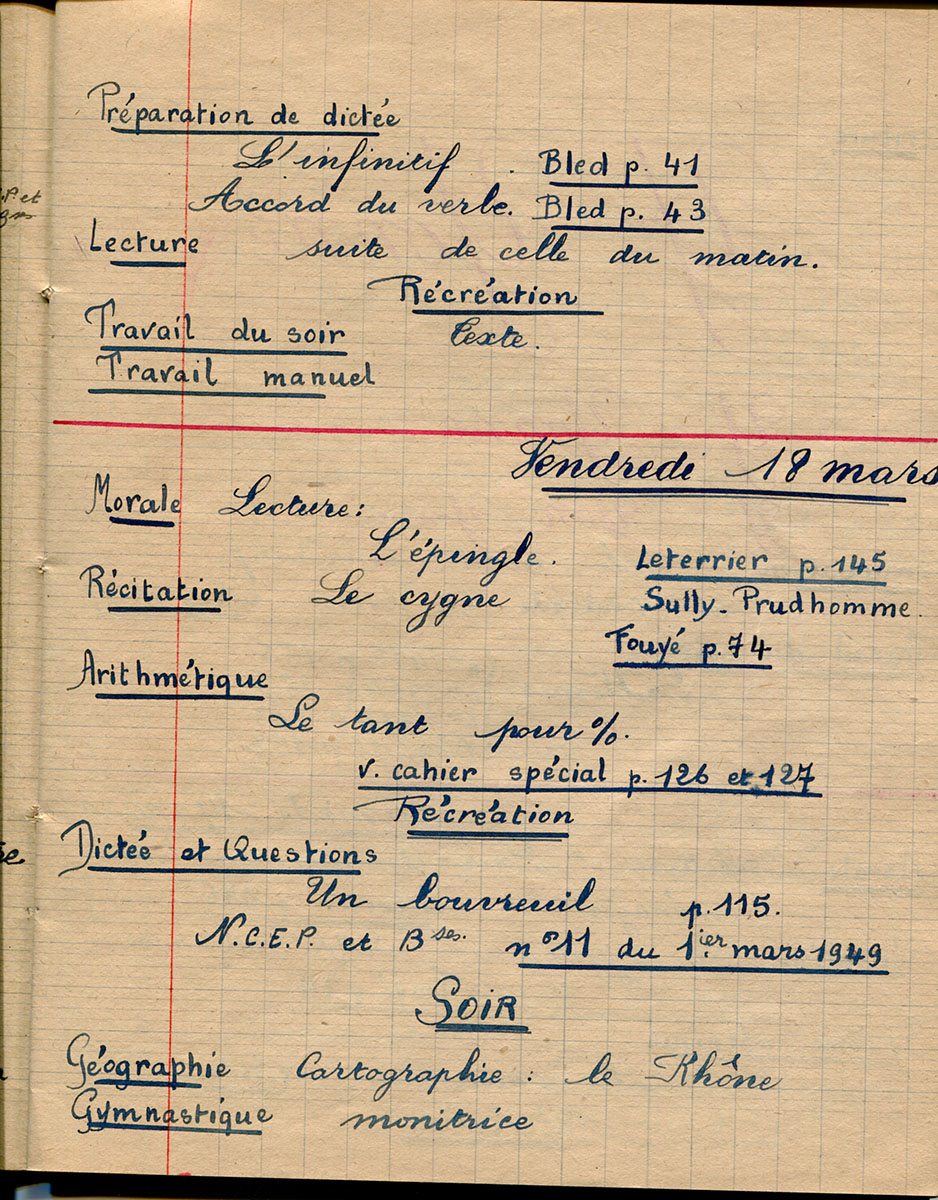 Préparation de dictée
L'infinitif. Bled p. 41
Accord du verbe. Bled p. 43
Lecture suite de celle du matin.
Récréation
Travail du soir texte.
Travail manuel
Vendredi 18 mars
Morale Lecture:
L'épingle. Leterrier p. 145
Récitation Le cygne Sully-Prudhomme.
Fouyé p. 74
Arithmétique
Le tant pour %.
v. cahier spécial p. 126 et 127
Récréation
Dictée et Questions
Un bouvreuil p. 115.
N.C.E.P. et Bses. n°11 du 1ier mars 1949
SOIR
Géographie Cartographie : le Rhône
Gymnastique monitrice